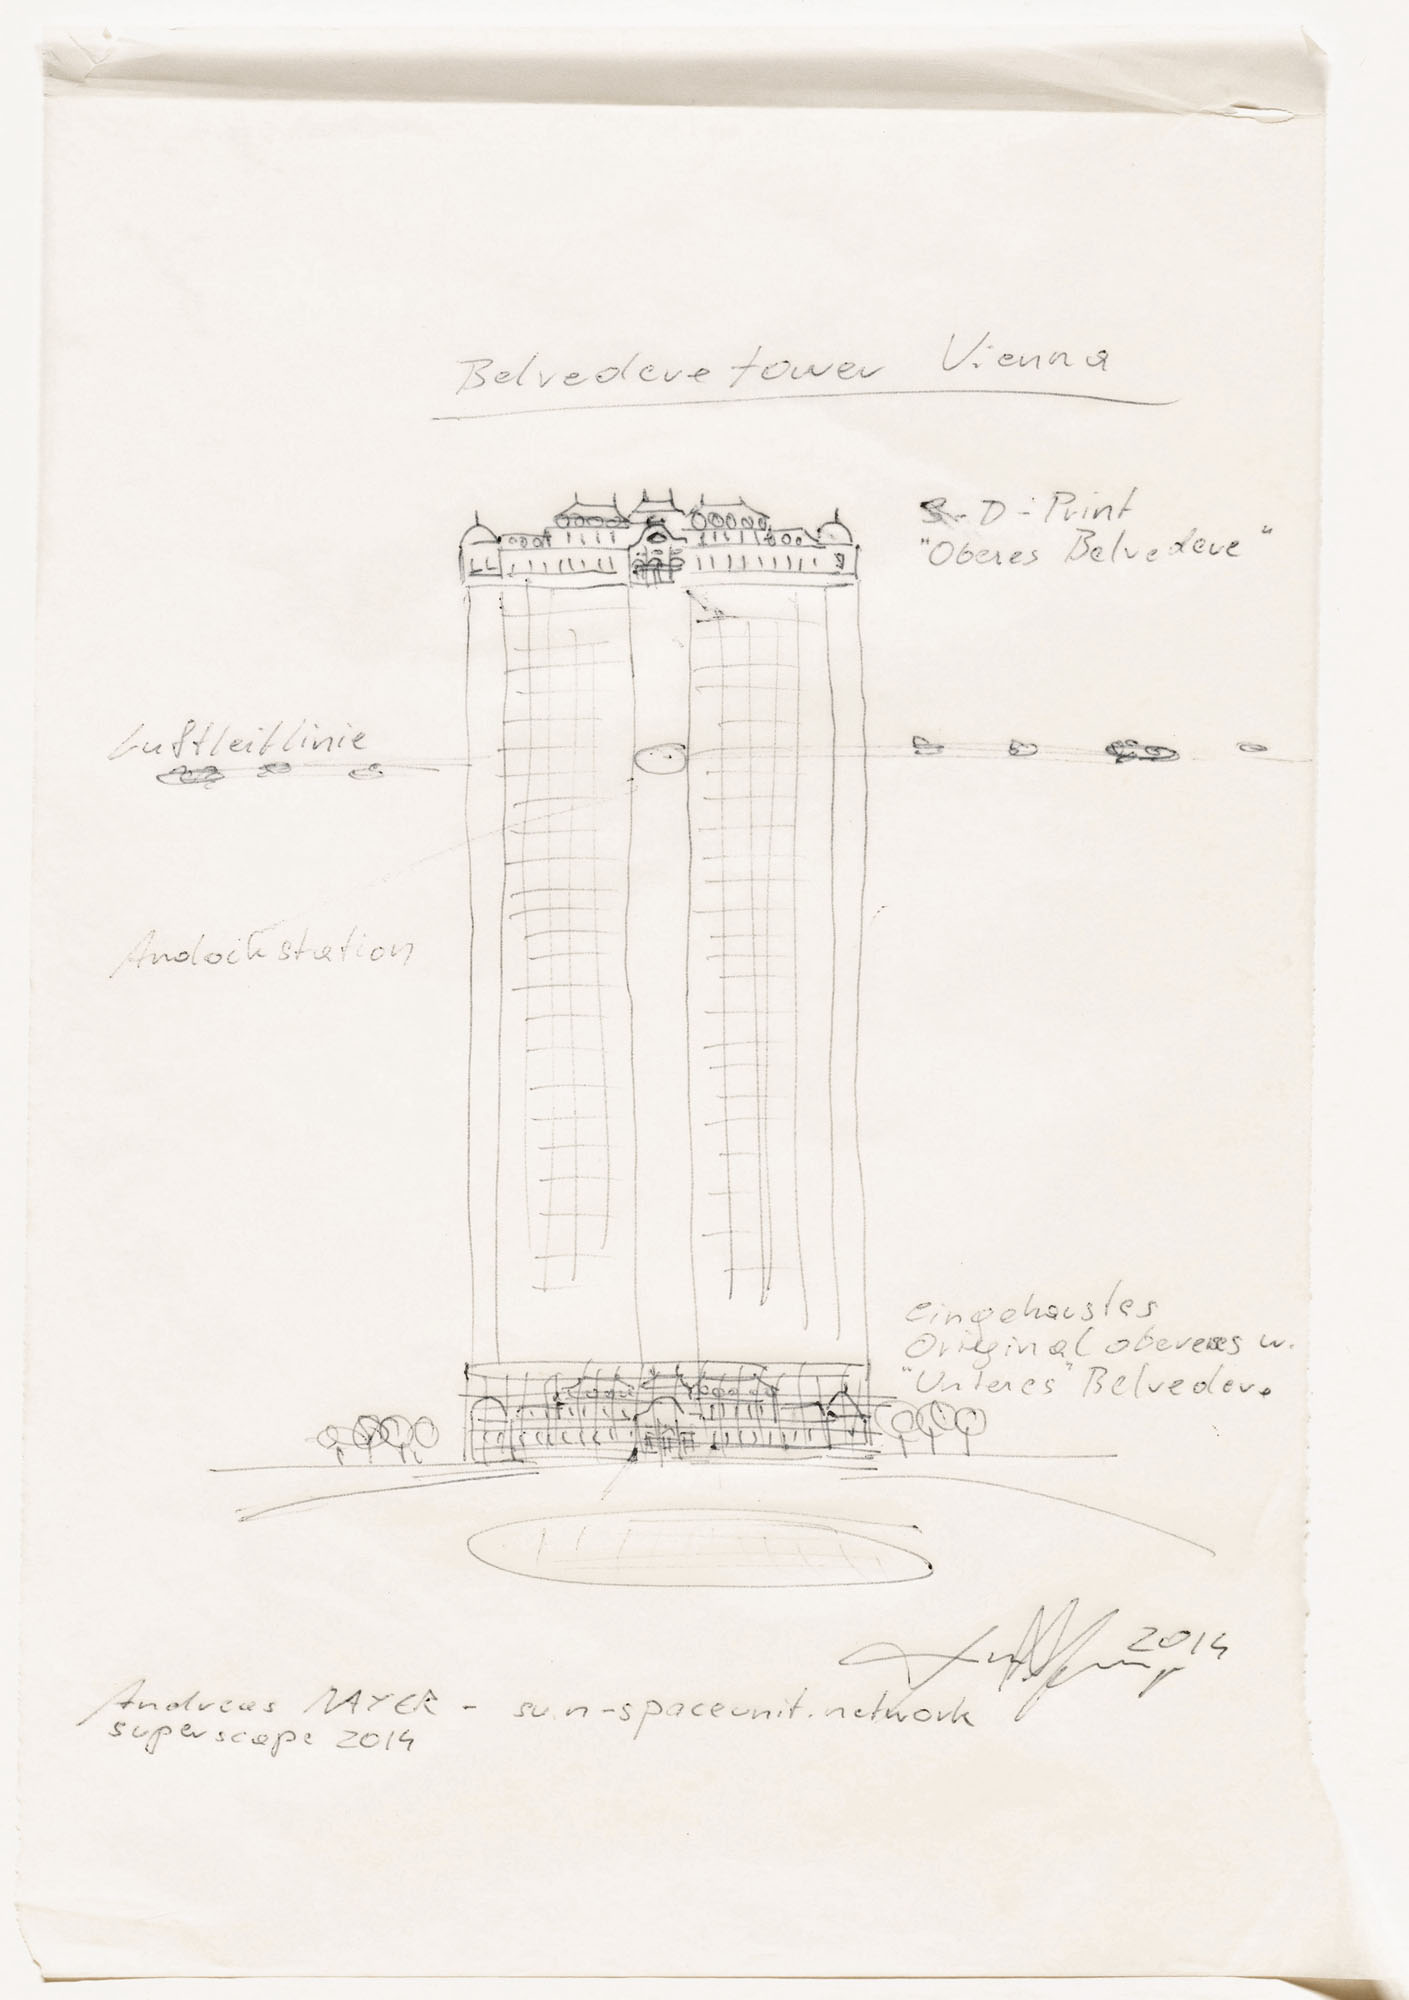 Belvedere tower Vienna
3-D-Print
"Oberes Belvedere"
Luftleitlinie
Andockstation
eingehaustes
Original oberes u.
"Unteres" Belveder.
2014
Andreas MAYER - sun-spaceunit.network
superscape 2014